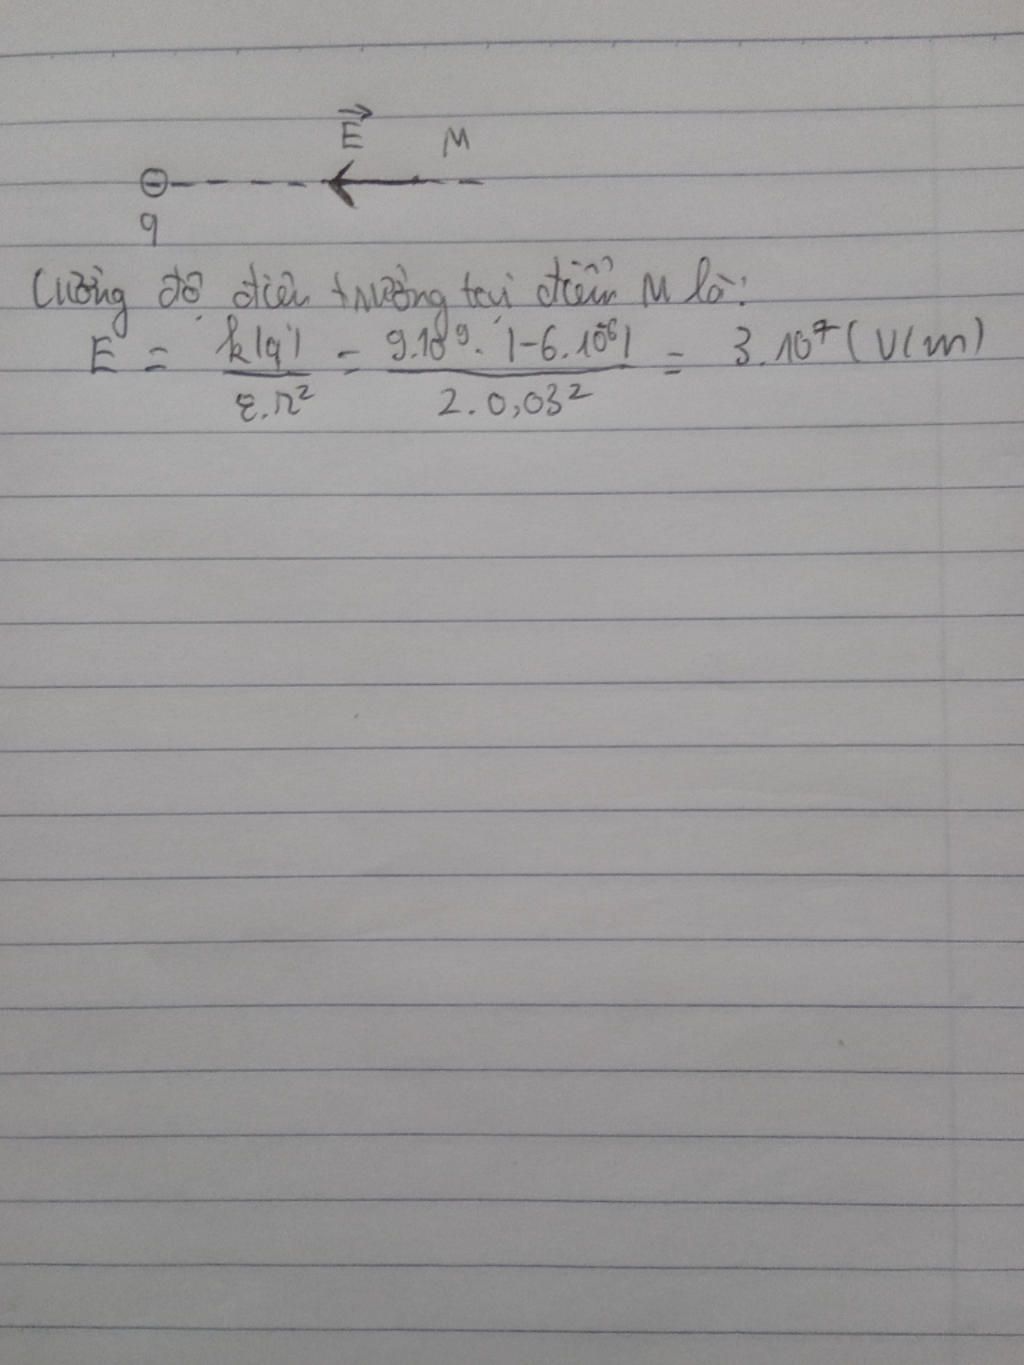 E⃗ M
q
Cường độ điện trường tại điểm M là:
E = k|q| / ε.r² = 9.10⁹.|-6.10⁻⁶| / 2.0,03² = 3.10⁷ (V/m)